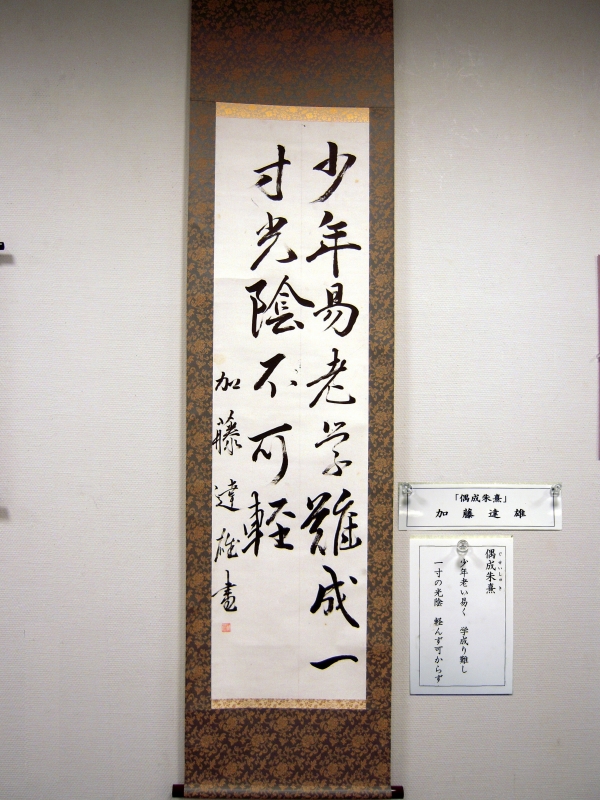 少年易老学難成一
寸光陰不可軽
加藤達雄書
「偶成朱熹」
加藤達雄
偶成朱熹
ぐうせいしゅき
少年老い易く　学成り難し
一寸の光陰　軽んず可からず